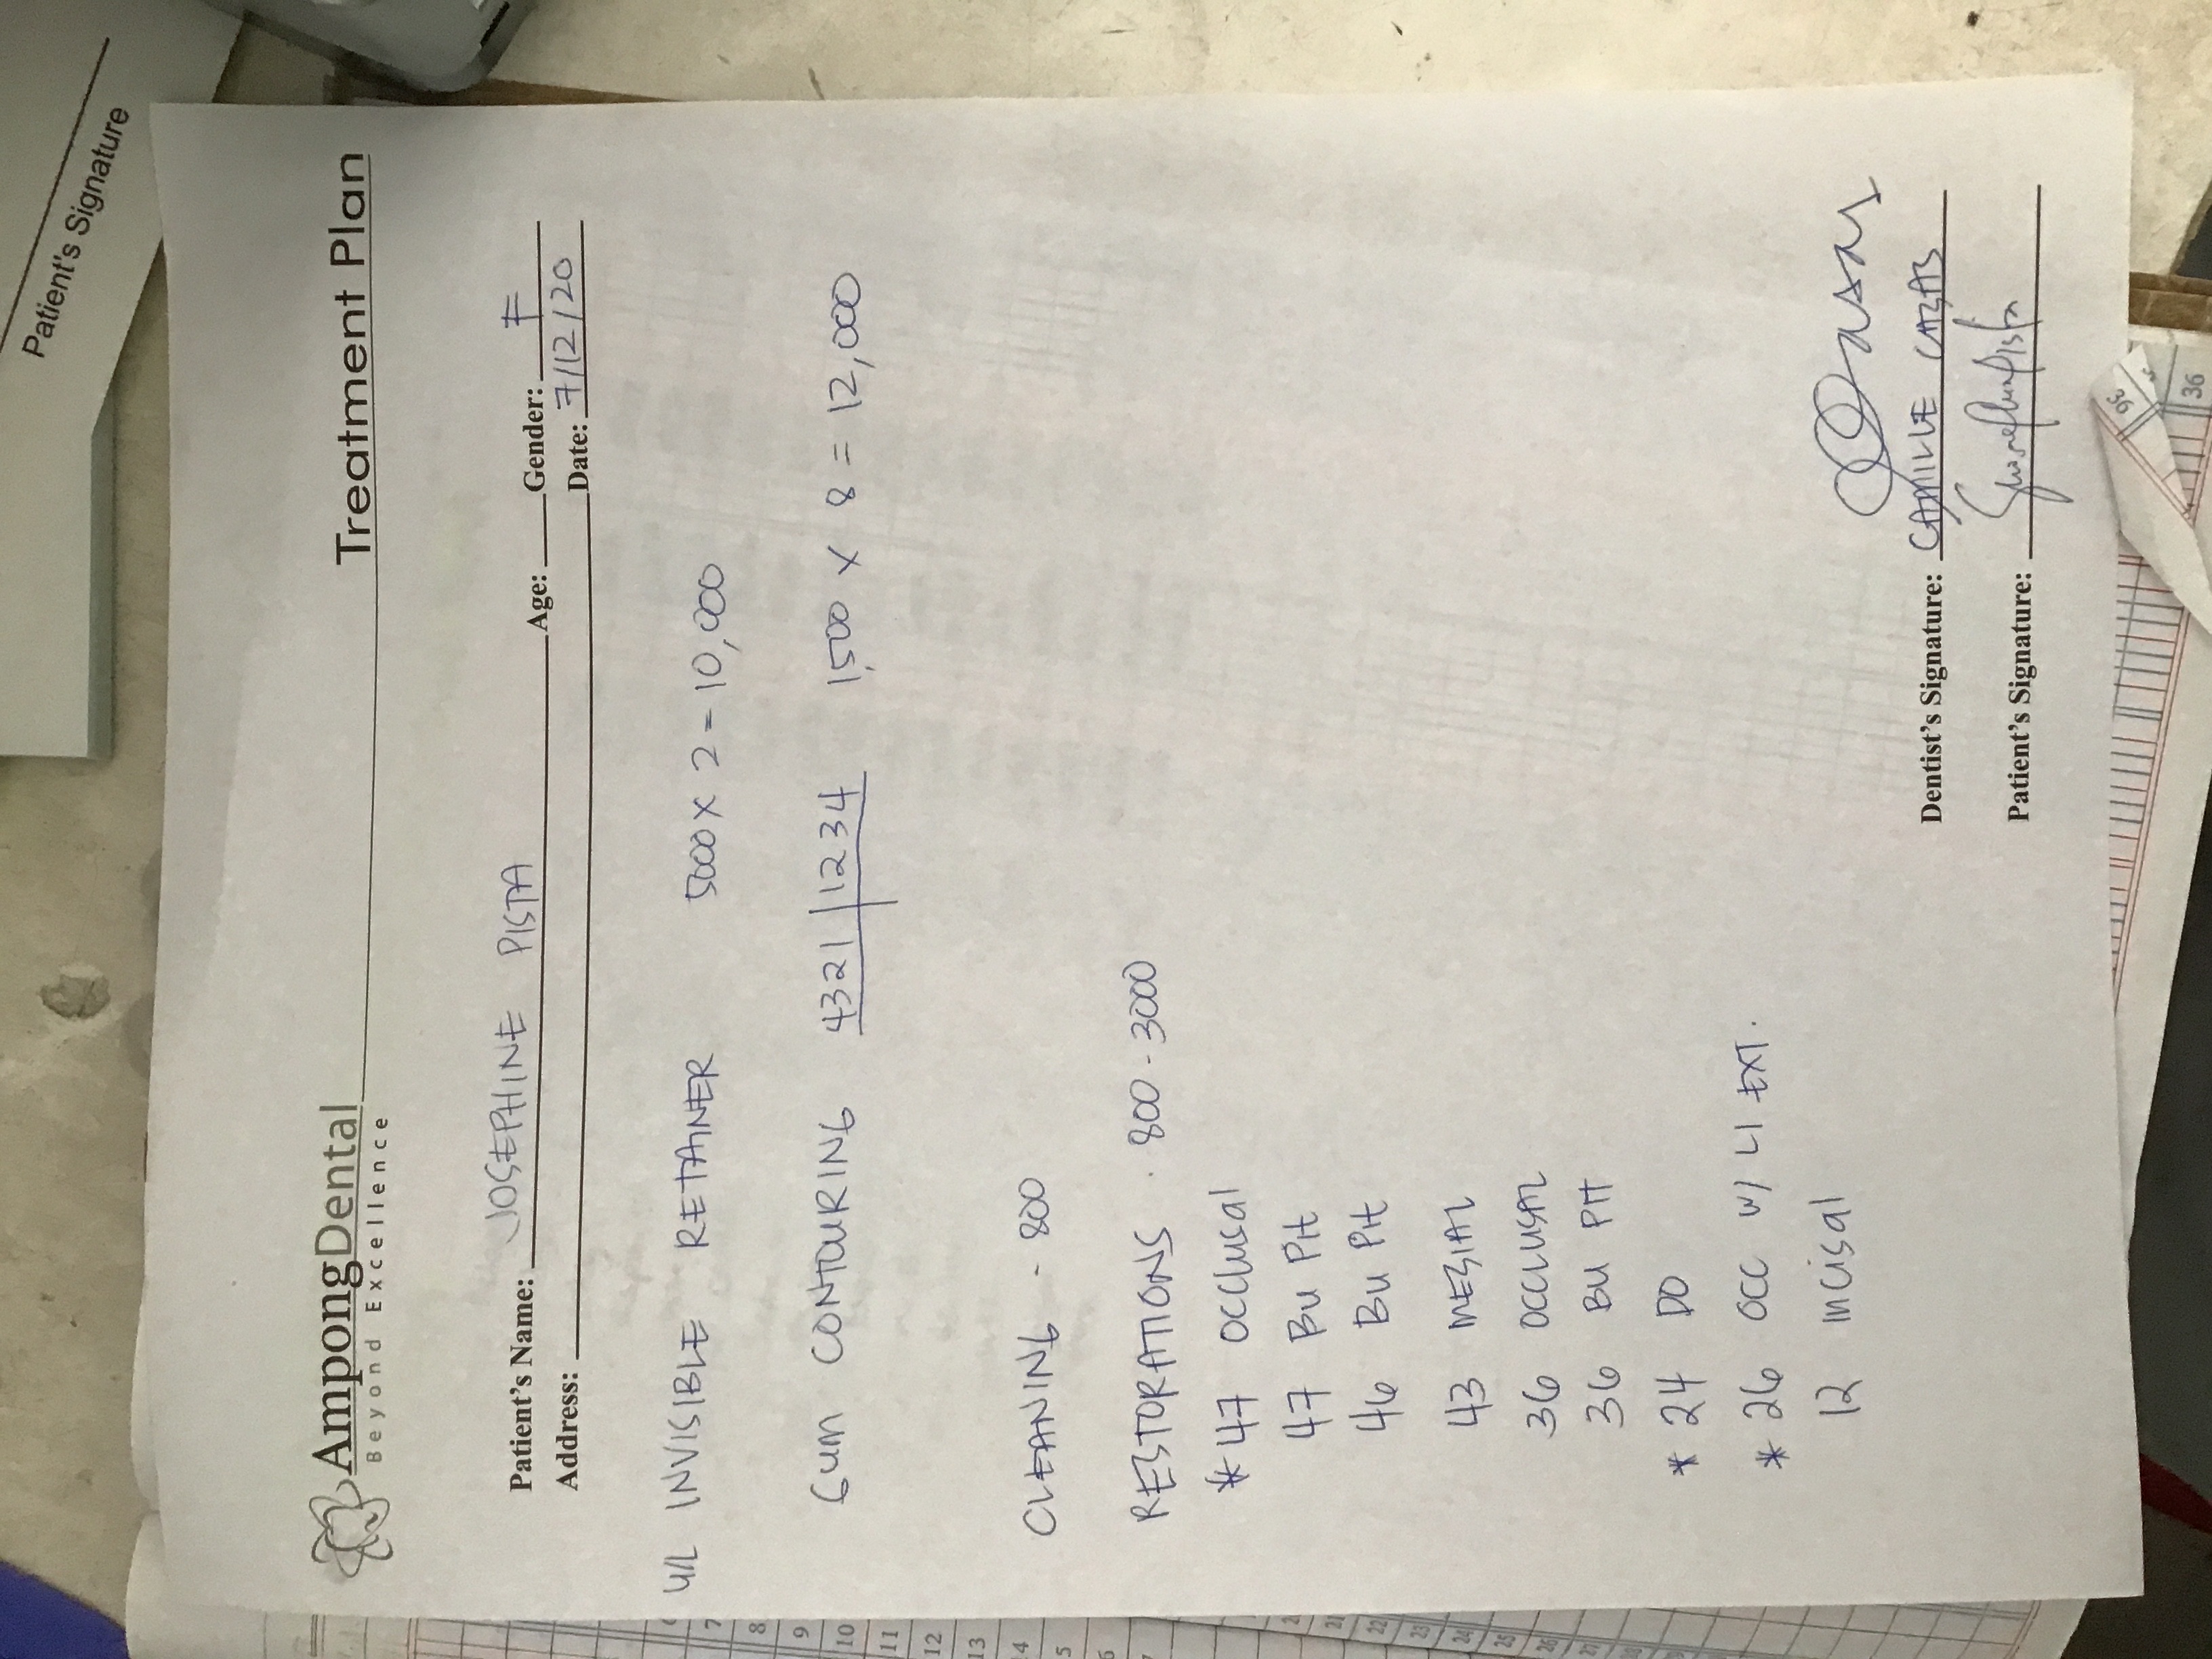 Patient's Signature
AmpongDental Treatment Plan
Beyond Excellence
Patient's Name: JOSEPHINE PISTA Age: Gender: F
Address: Date: 7/12/20
U/L INVISIBLE RETAINER 5000 x 2 - 10,000
GUM CONTOURING 4321|1234 1,500 x 8 = 12,000
CLEANING - 800
RESTORATIONS . 800 - 3000
* 47 OCClusal
47 Bu Pit
46 Bu Pit
43 MESIAL
36 OCCLUSAL
36 BU PIT
* 24 DO
* 26 OCC W/ LI EXT.
12 incisal
Dentist's Signature: CAMILLE
Patient's Signature:
7
8
9
10
11
12
13
36
36
21
22
23
24
25
26
27